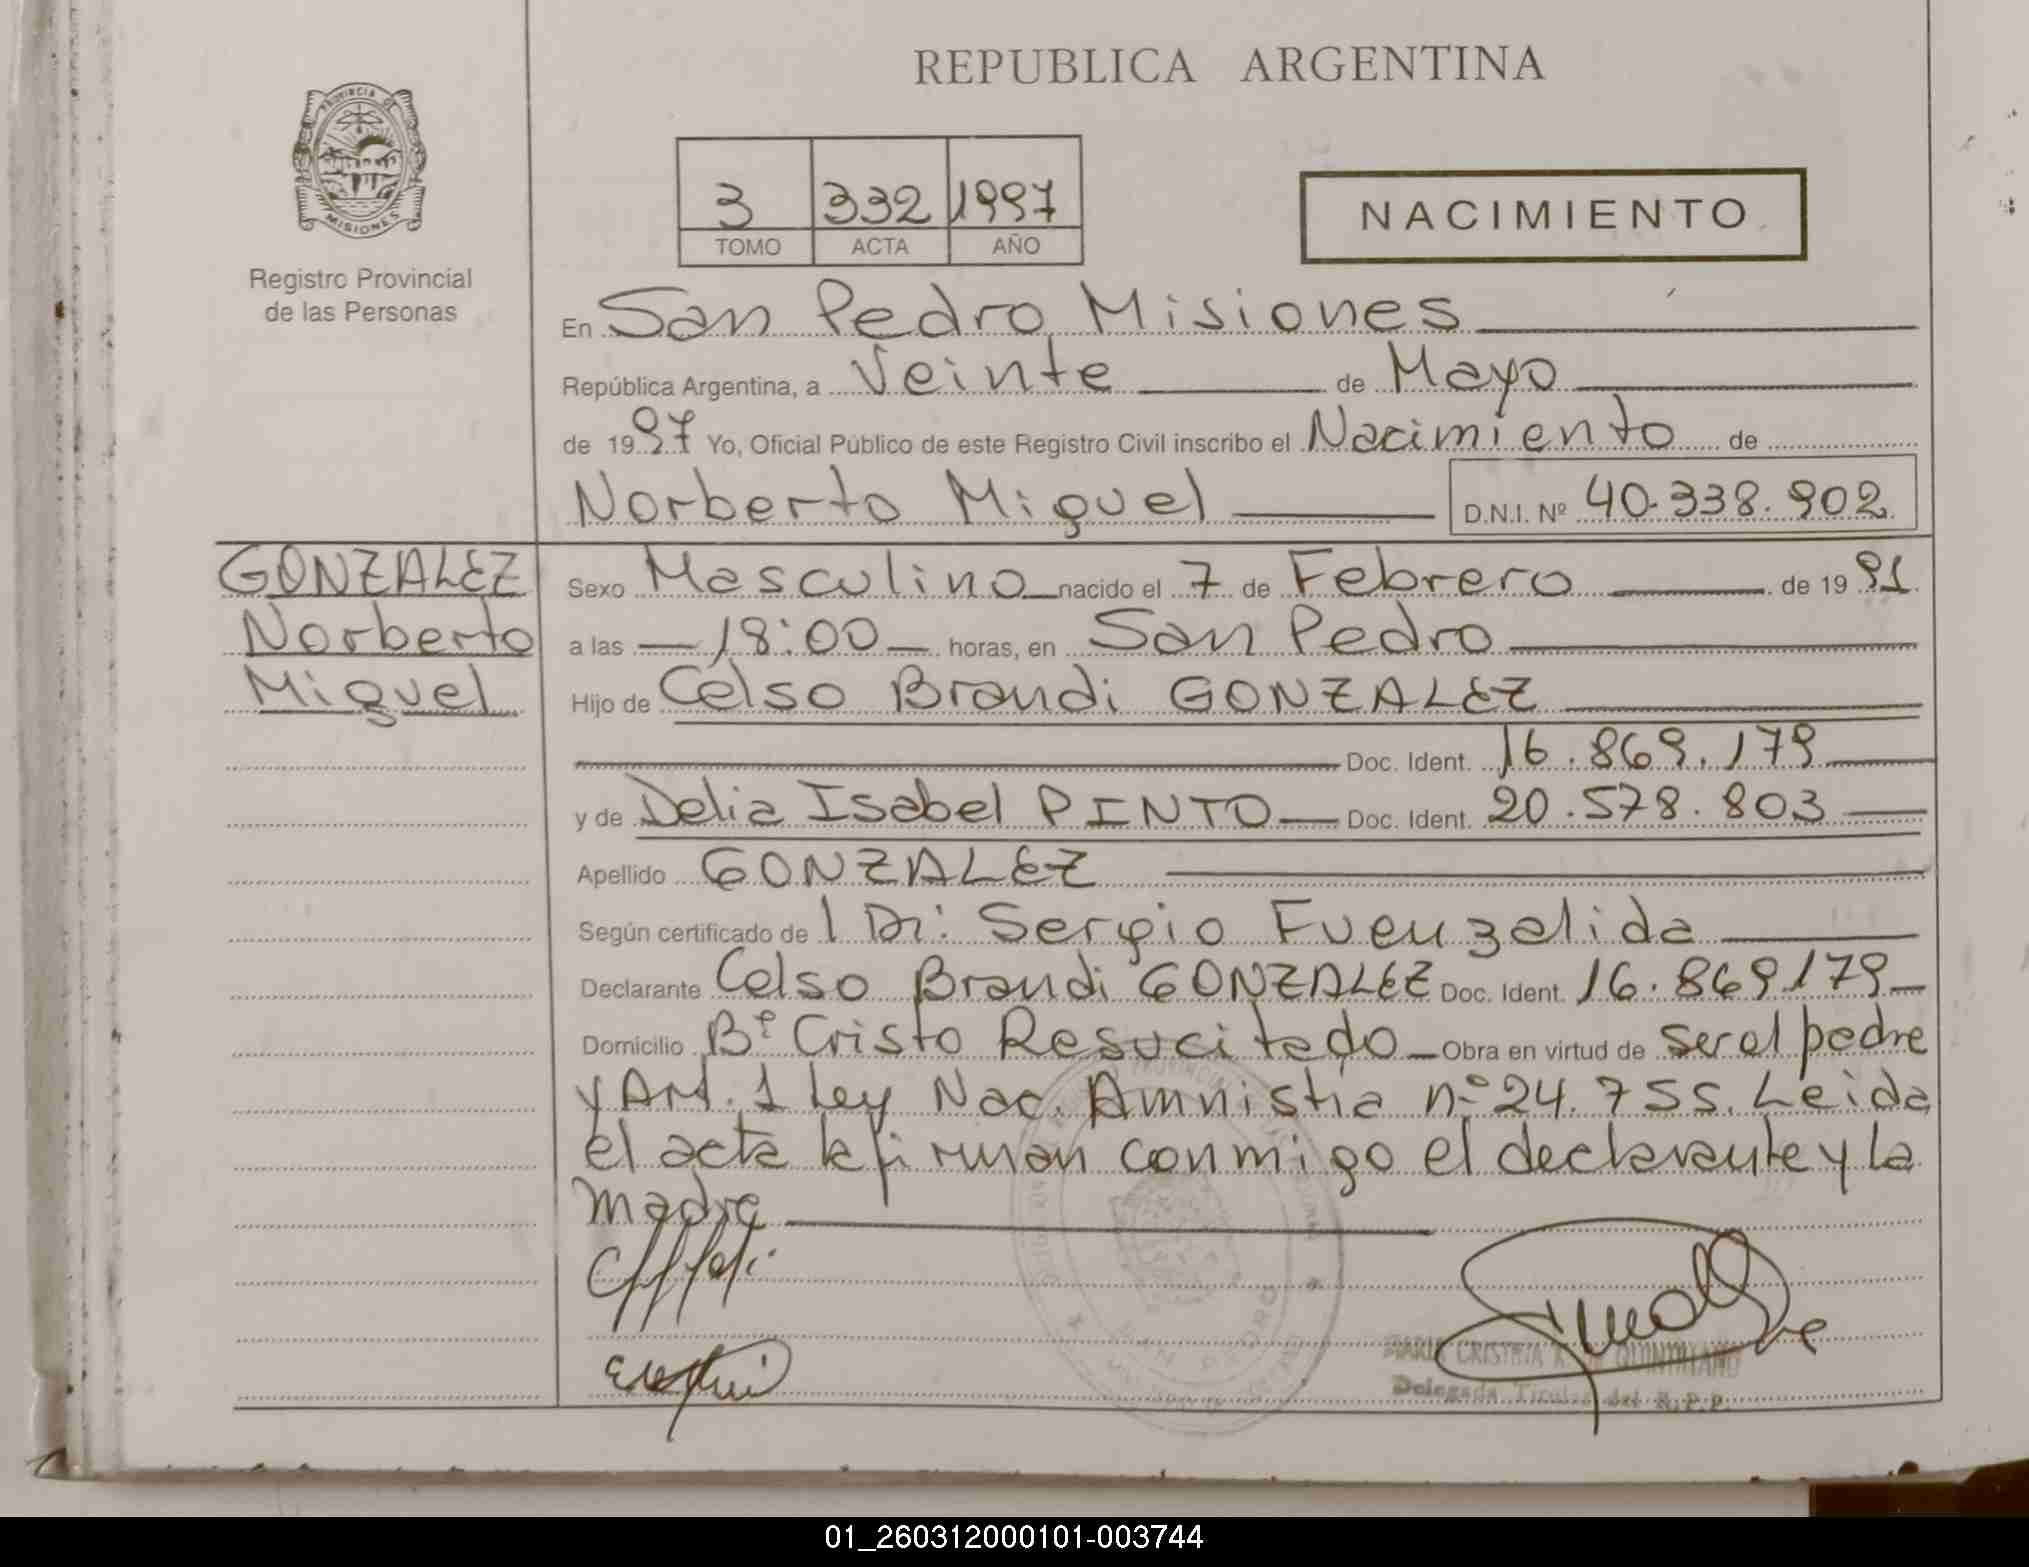 REPUBLICA ARGENTINA
PROVINCIA DE
MISIONES
Registro Provincial
de las Personas
3 332 1997
TOMO ACTA AÑO
NACIMIENTO
En San Pedro Misiones
República Argentina, a Veinte de Mayo
de 1997 Yo, Oficial Público de este Registro Civil inscribo el Nacimiento de
Norberto Miguel D.N.I. Nº 40.338.902
GONZALEZ
Norberto
Miguel
Sexo Masculino nacido el 7 de Febrero de 1991
a las 18:00 horas, en San Pedro
Hijo de Celso Brandi GONZALEZ
Doc. Ident. 16.869.179
y de Delia Isabel PINTO Doc. Ident. 20.578.803
Apellido GONZALEZ
Según certificado de l Dr: Sergio Fuenzalida
Declarante Celso Brandi GONZALEZ Doc. Ident. 16.869179
Domicilio Bº Cristo Resucitado Obra en virtud de ser el padre
y Art. 1 Ley Nac. Amnistia nº 24.755. Leida
el acta la firman conmigo el declarante y la
madre
SAN PEDRO
MARIA CRISTINA QUINTINIANO
Delegada Titular del R.P.P.
01_260312000101-003744